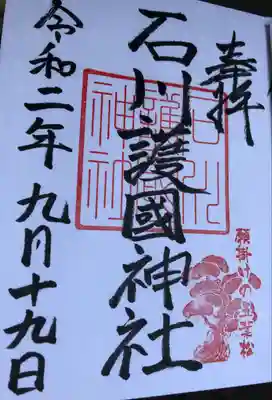 奉拝
石川護國神社
石川護國神社
令和二年九月十九日
願掛けの